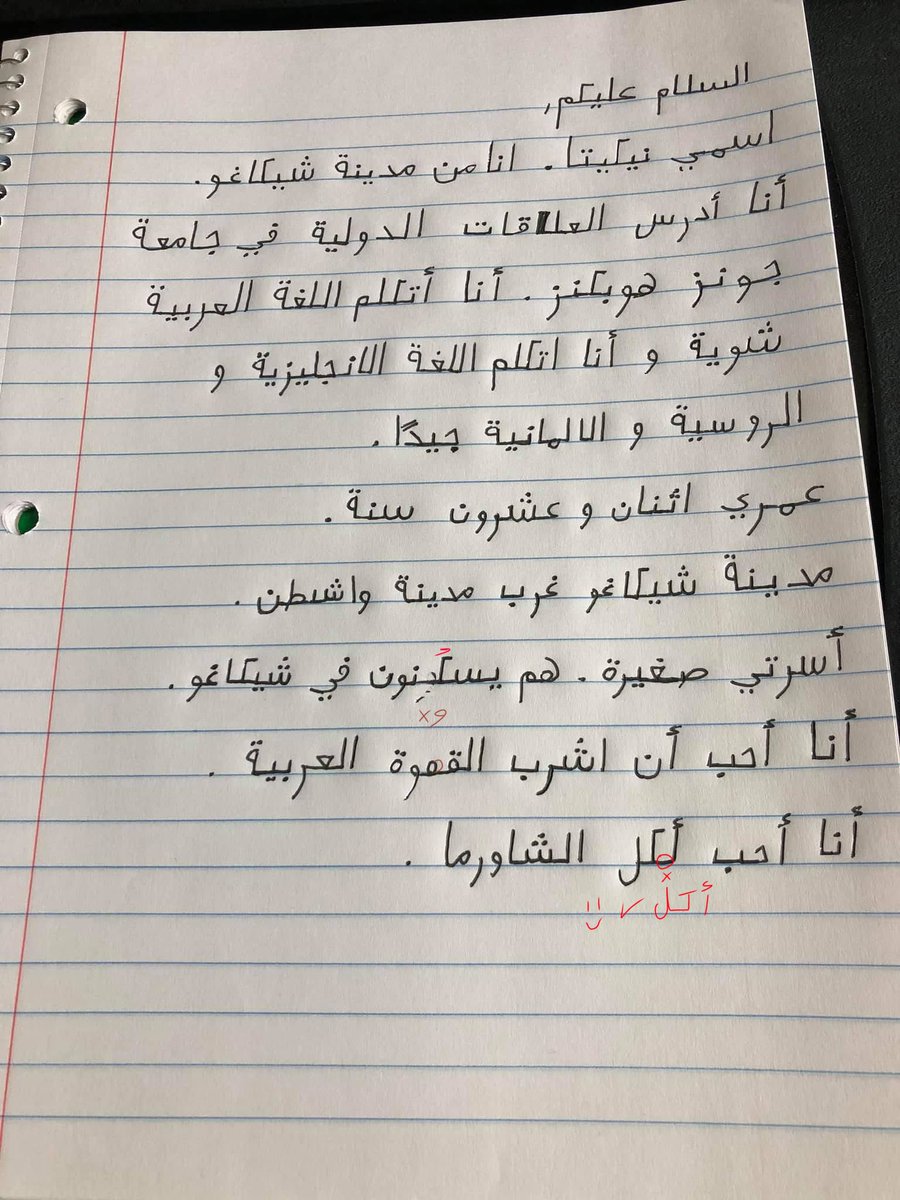 السلام عليكم,
اسمي نيكيتا. انا من مدينة شيكاغو.
أنا أدرس العلاقات الدولية في جامعة
جونز هوبكنز. أنا أتكلم اللغة العربية
شوية و أنا اتكلم اللغة الانجليزية و
الروسية و الالمانية جيدًا.
عمري اثنان و عشرون سنة.
مدينة شيكاغو غرب مدينة واشطن.
أسرتي صغيرة. هم يسكنون في شيكاغو.
أنا أحب أن اشرب القهوة العربية.
أنا أحب أكل الشاورما.
أكل